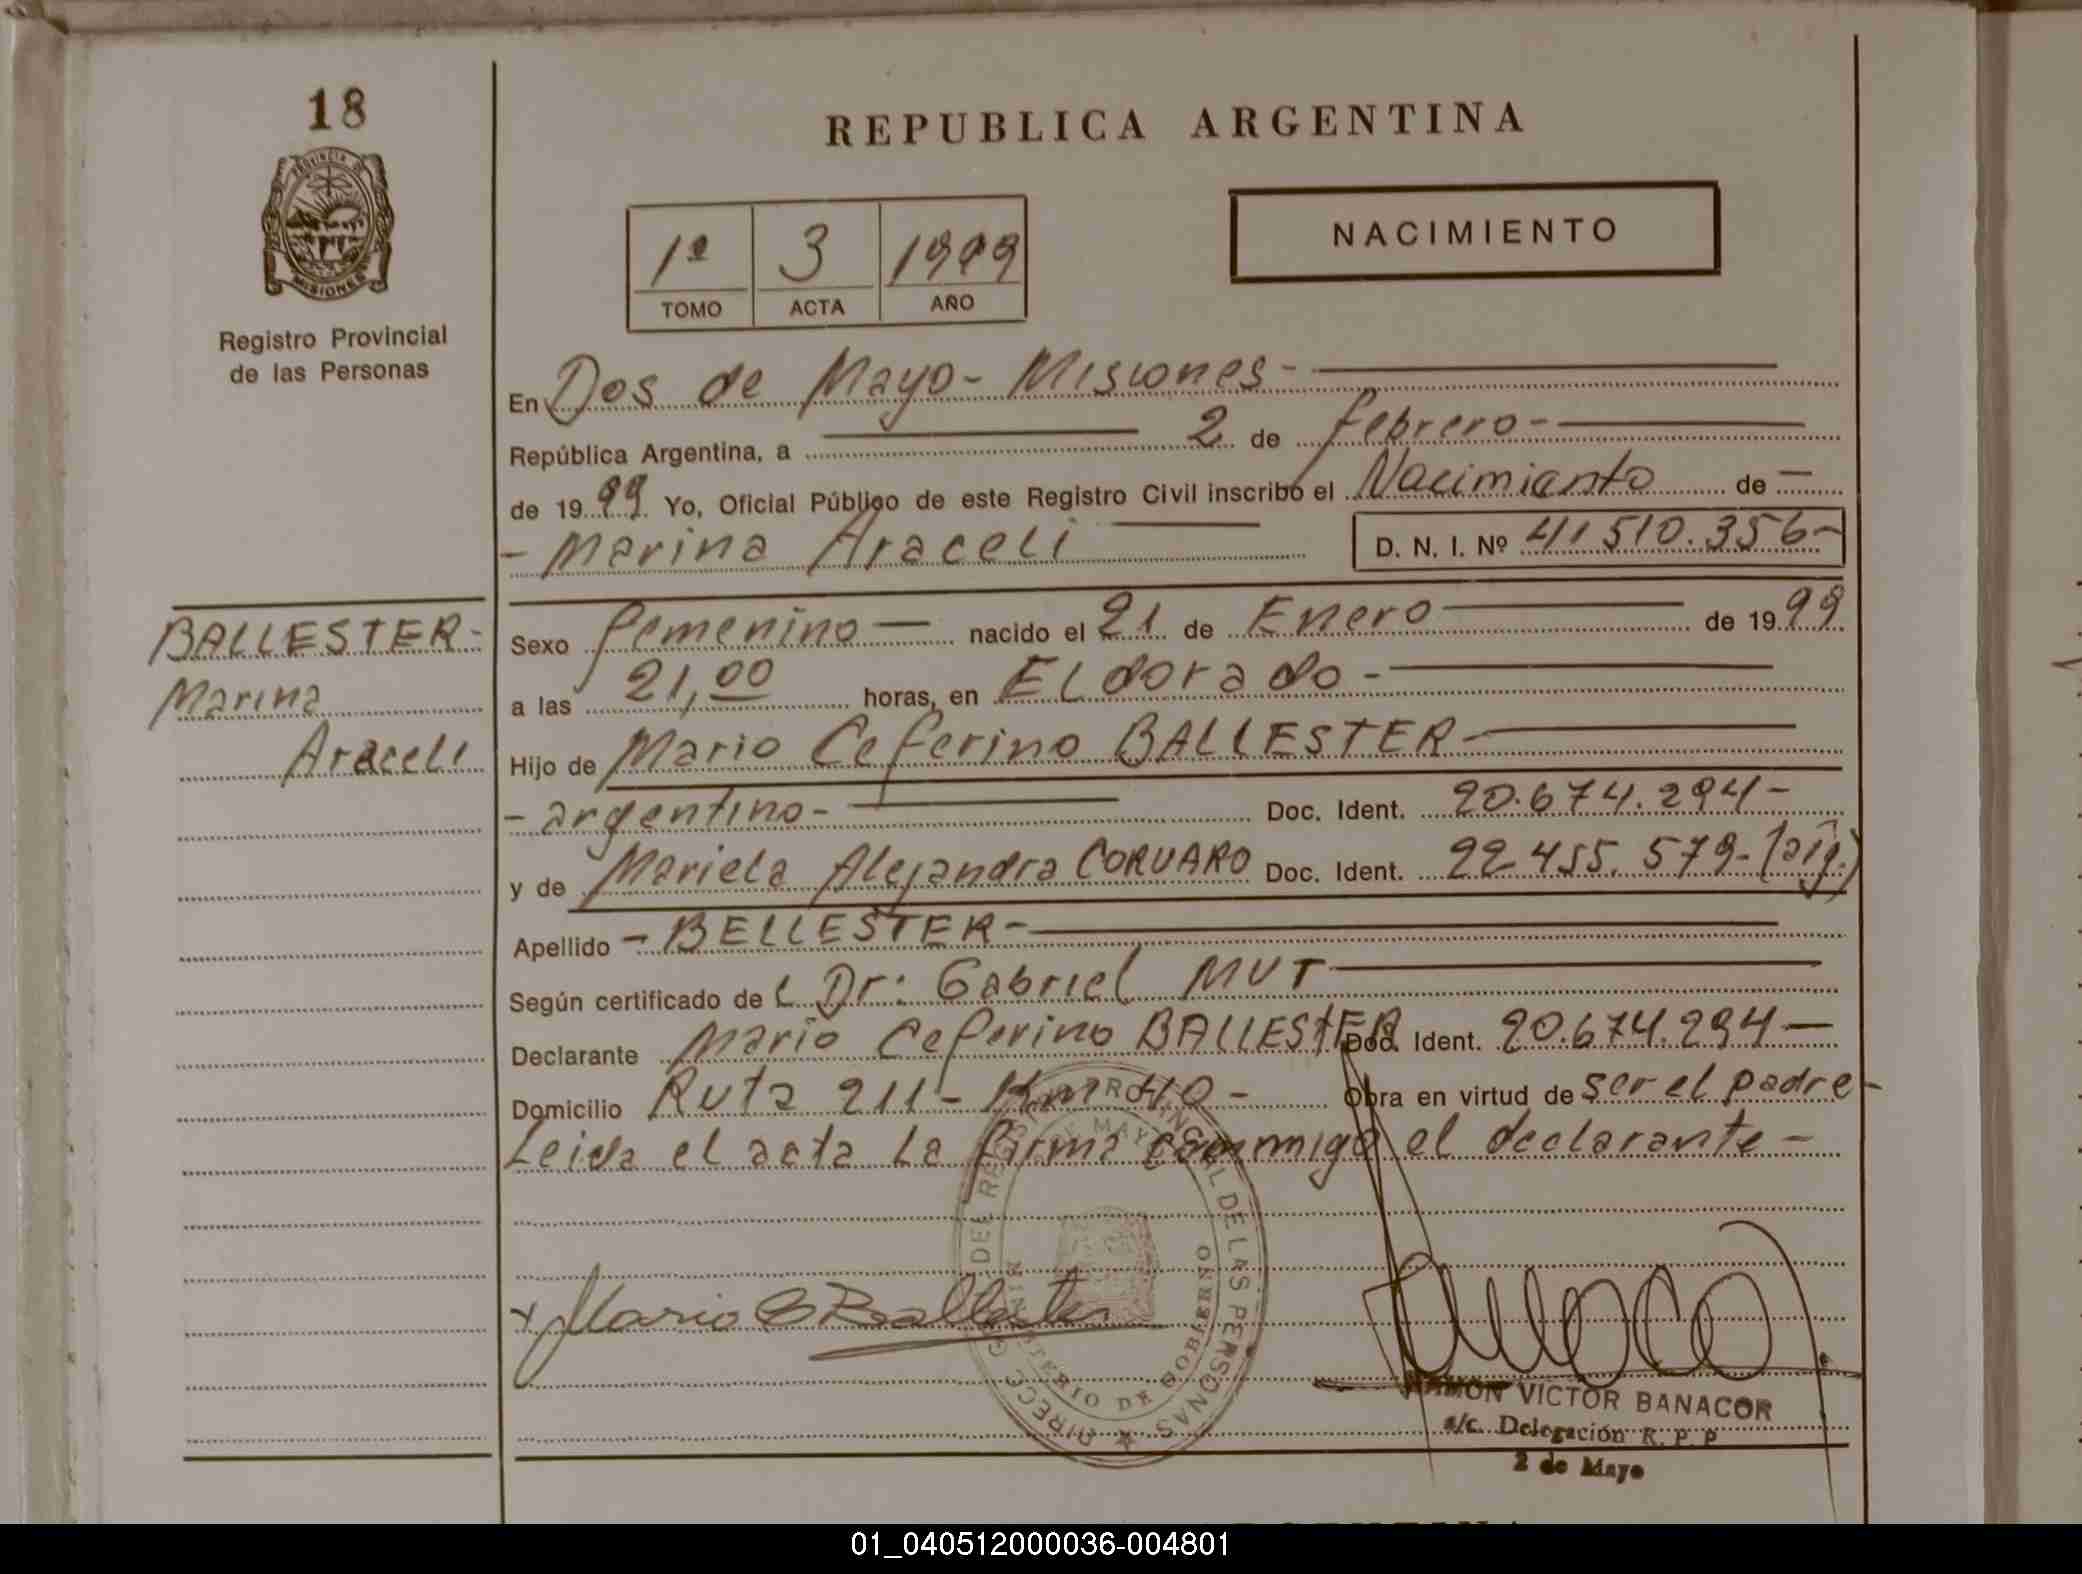 18
REPUBLICA ARGENTINA
PROVINCIA DE
MISIONES
Registro Provincial
de las Personas
1º 3 1999
TOMO ACTA AÑO
NACIMIENTO
En Dos de Mayo - Misiones -
República Argentina, a 2 de febrero -
de 1999 Yo, Oficial Público de este Registro Civil inscribo el Nacimiento de -
- Marina Araceli D. N. I. Nº 41510.356-
BALLESTER-
Marina
Araceli
Sexo femenino - nacido el 21 de Enero de 1999
a las 21,00 horas, en ELdorado -
Hijo de Mario Ceferino BALLESTER -
- argentino - Doc. Ident. 20.674.294 -
y de Mariela Alejandra CORVARO Doc. Ident. 22.455.579-(arg.)
Apellido - BELLESTER -
Según certificado de L Dr: Gabriel MUT
Declarante Mario Ceferino BALLESTER Doc. Ident. 20.674.294 -
Domicilio Ruta 211 - Km 40 - Obra en virtud de ser el padre -
Leida el acta La firma commigo el declarante -
DIRECC G DEL REGISTRO PROVINCIAL DE LAS PERSONAS
MINISTERIO DE GOBIERNO
DE MAYO
x Mario C Ballester
RAMON VICTOR BANACOR
a/c. Delegación R. P. P
2 de Mayo
01_040512000036-004801